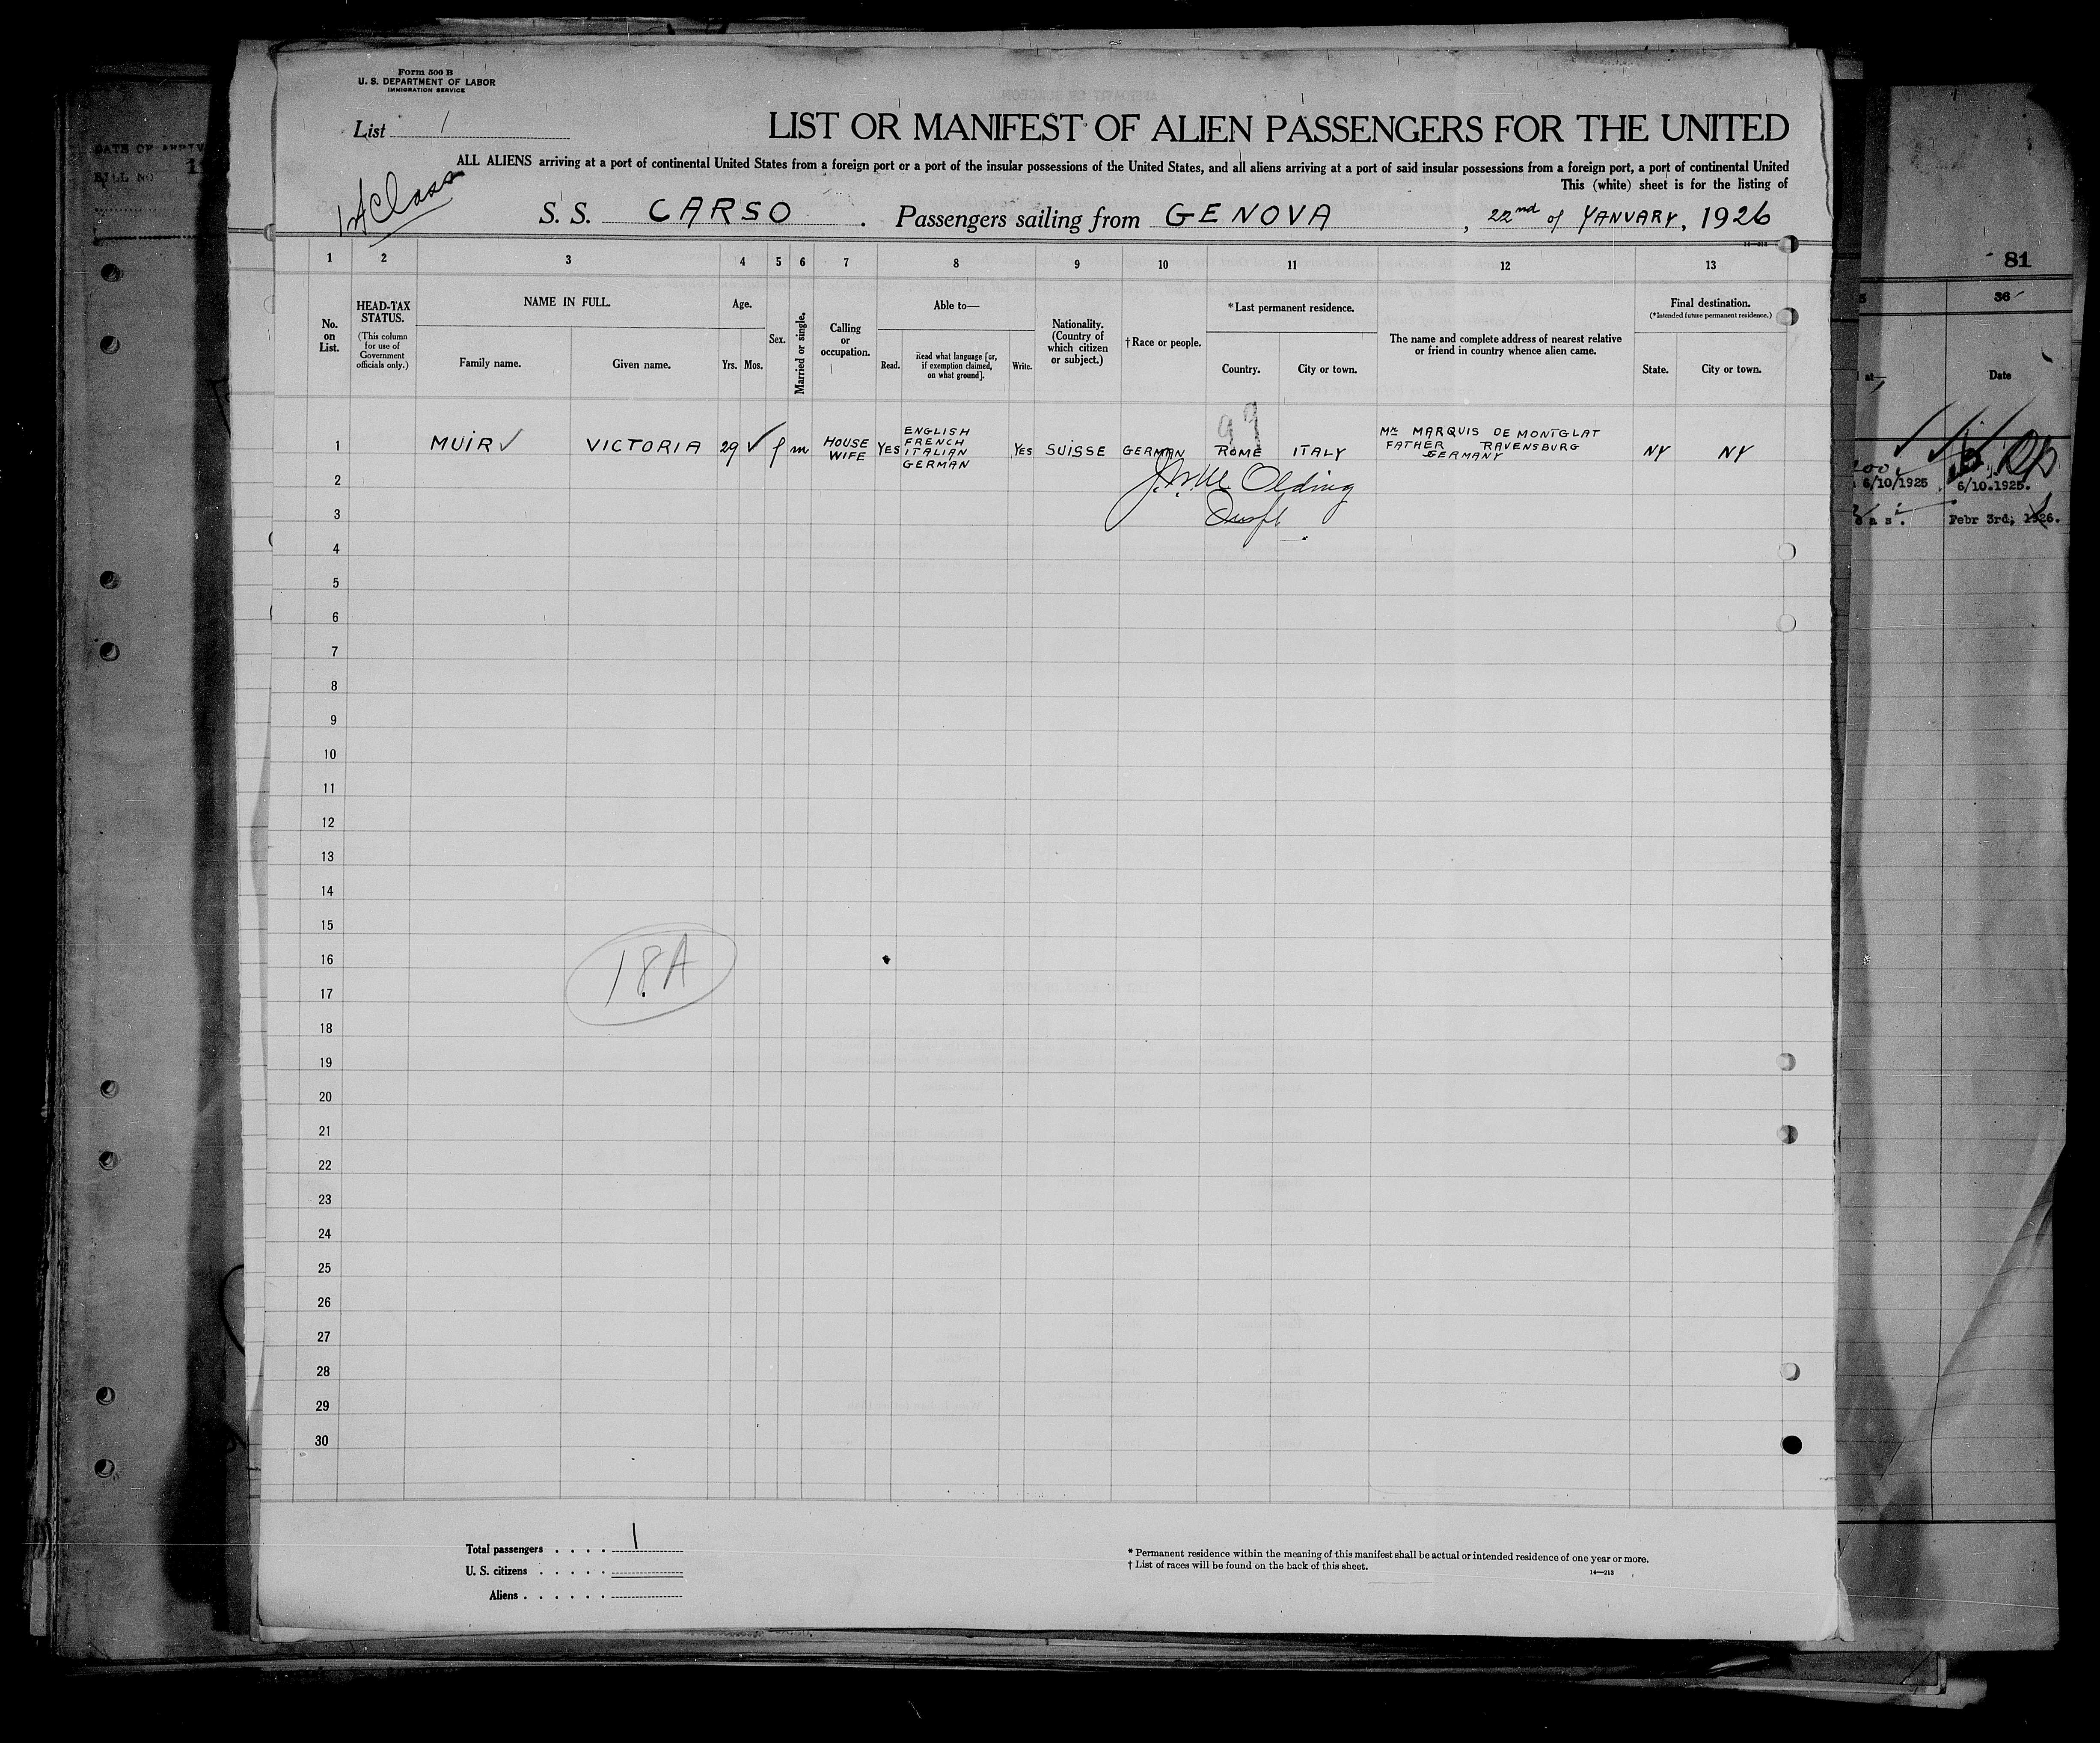 Form 500 B
U. S. DEPARTMENT OF LABOR
IMMIGRATION SERVICE
List 1
LIST OR MANIFEST OF ALIEN PASSENGERS FOR THE UNITED
ALL ALIENS arriving at a port of continental United States from a foreign port or a port of the insular possessions of the United States, and all aliens arriving at a port of said insular possessions from a foreign port, a port of continental United
This (white) sheet is for the listing of
Class
S. S. CARSO. Passengers sailing from GENOVA, 22nd of YANUARY, 1926
14—213
1 2 3 4 5 6 7 8 9 10 11 12 13
No. on List.
HEAD-TAX STATUS.
(This column for use of Government officials only.)
NAME IN FULL.
Family name.
Given name.
Age.
Yrs. Mos.
Sex.
Married or single.
Calling or occupation.
Able to—
Read.
Read what language [or, if exemption claimed, on what ground].
Write.
Nationality. (Country of which citizen or subject.)
†Race or people.
*Last permanent residence.
Country.
City or town.
The name and complete address of nearest relative or friend in country whence alien came.
Final destination.
(*Intended future permanent residence.)
State.
City or town.
99
1 MUIR ✓ VICTORIA 29 ✓ f m HOUSE WIFE YES ENGLISH FRENCH ITALIAN GERMAN YES SUISSE GERMAN ROME ITALY Mr MARQUIS DE MONTGLAT FATHER RAVENSBURG GERMANY NY NY
2 Olding
3
4
5
6
7
8
9
10
11
12
13
14
15
16
17
18
19
20
21
22
23
24
25
26
27
28
29
30
18A
Total passengers . . . . 1
U. S. citizens . . . . .
Aliens . . . . . .
* Permanent residence within the meaning of this manifest shall be actual or intended residence of one year or more.
† List of races will be found on the back of this sheet.
14—213
DATE OF
BILL NO
81
36
Date
6/10/1925
6/10.1925.
Febr 3rd, 1926.